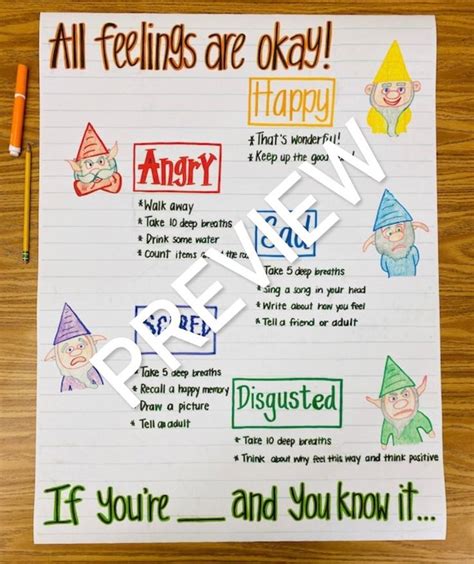 All feelings are okay!
Happy
* That's wonderful!
* Keep up the good
Angry
* Walk away
* Take 10 deep breaths
* Drink some water
* Count items around the
Sad
* Take 5 deep breaths
* Sing a song in your head
* Write about how you feel
* Tell a friend or adult
Scared
* Take 5 deep breaths
* Recall a happy memory
* Draw a picture
* Tell an adult
Disgusted
* Take 10 deep breaths
* Think about why feel this way and think positive
If you're ___ and you know it...
PREVIEW